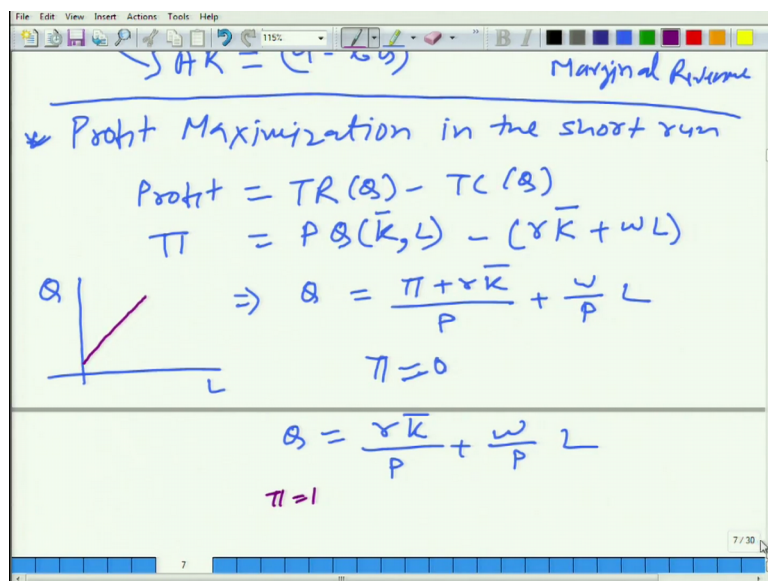 File Edit View Insert Actions Tools Help
115%
B I
Marginal Revenue
* Profit Maximization in the short run
Profit = TR(Q) - TC(Q)
π = PQ(K̄, L) - (rK̄ + wL)
Q
⇒ Q = (π + rK̄)/P + w/P L
L
π = 0
Q = rK̄/P + w/P L
π = 1
7 / 30
7